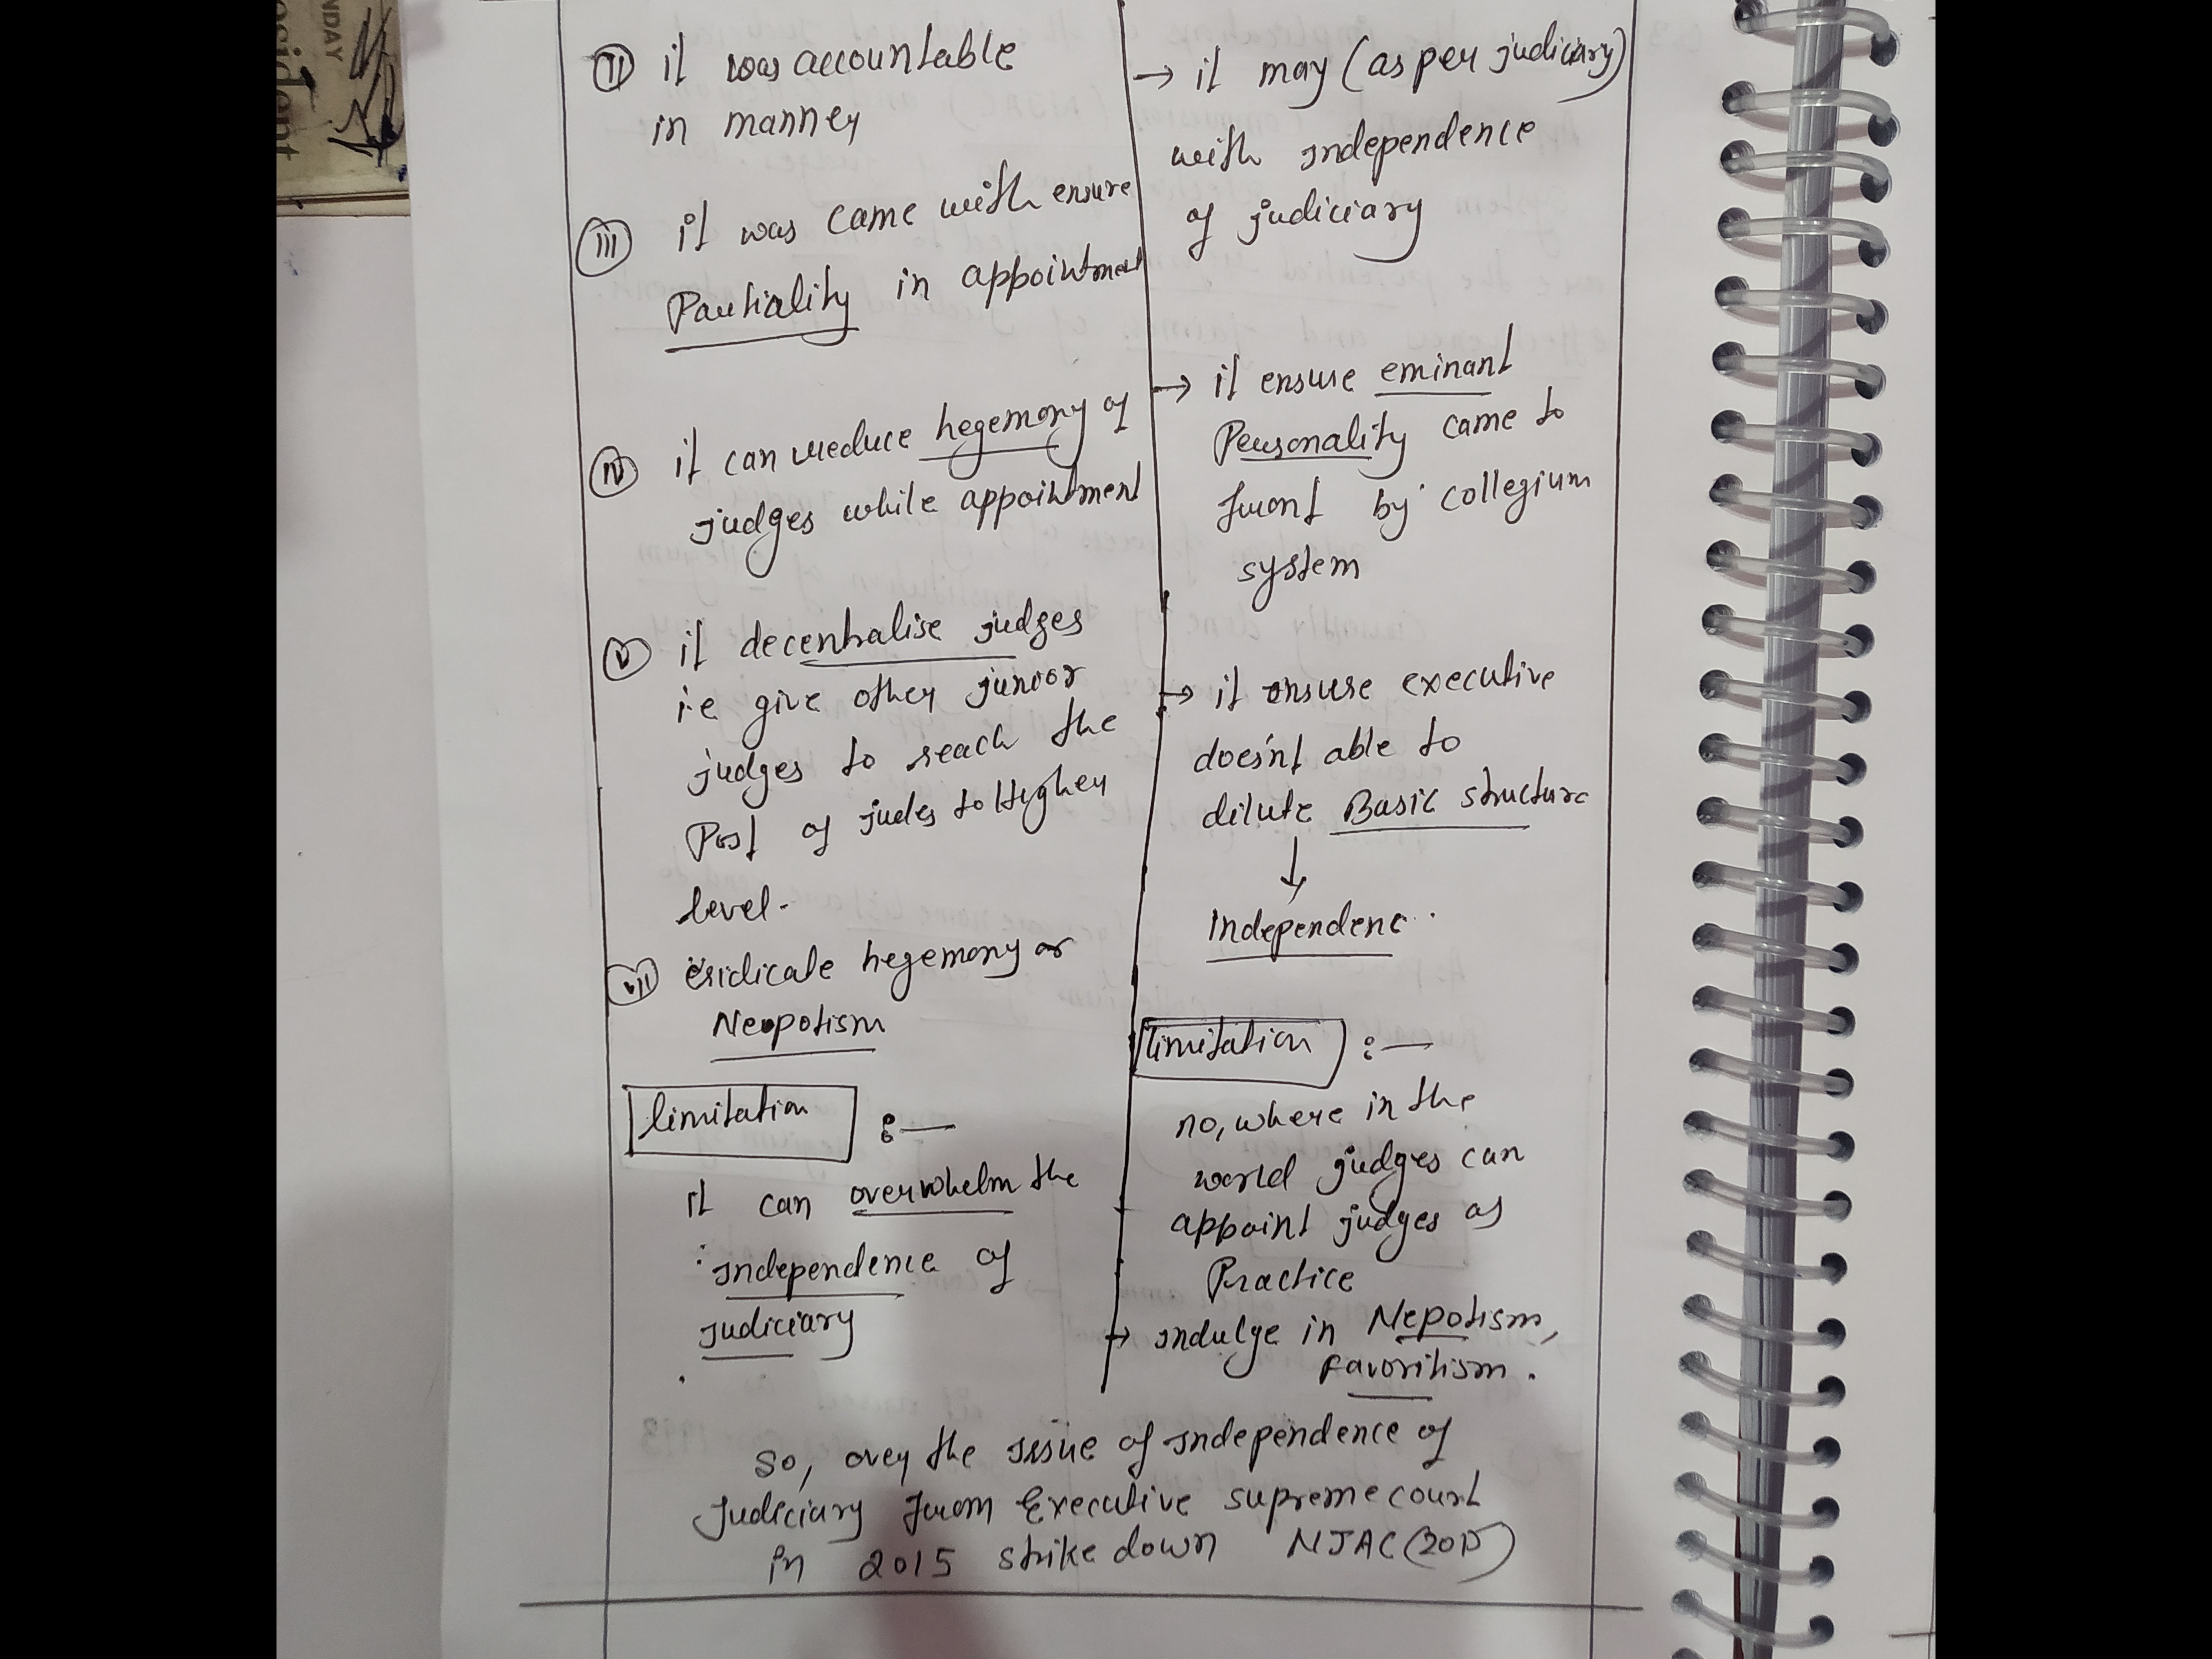 NDAY
esident
(II) it was accountable
in manner
(III) it was came with ensure
Partiality in appointment
(IV) it can reduce hegemony of
judges while appointment
(V) it decentralise judges
i.e give other junior
judges to reach the
Post of judes to Higher
level.
(VII) eridicate hegemony or
Neopotism
limitation :—
it can overwhelm the
independence of
judiciary
→ it may (as per judiciary)
with independence
of judiciary
→ it ensure eminant
Personality came to
front by collegium
system
→ it ensure executive
does'nt able to
dilute Basic structure
↓
Independenc
limitation :—
no, where in the
world judges can
appoint judges as
Practice
→ indulge in Nepotism,
favoritism.
So, over the issue of independence of
judiciary from Executive supreme court
in 2015 strike down NJAC (2015)